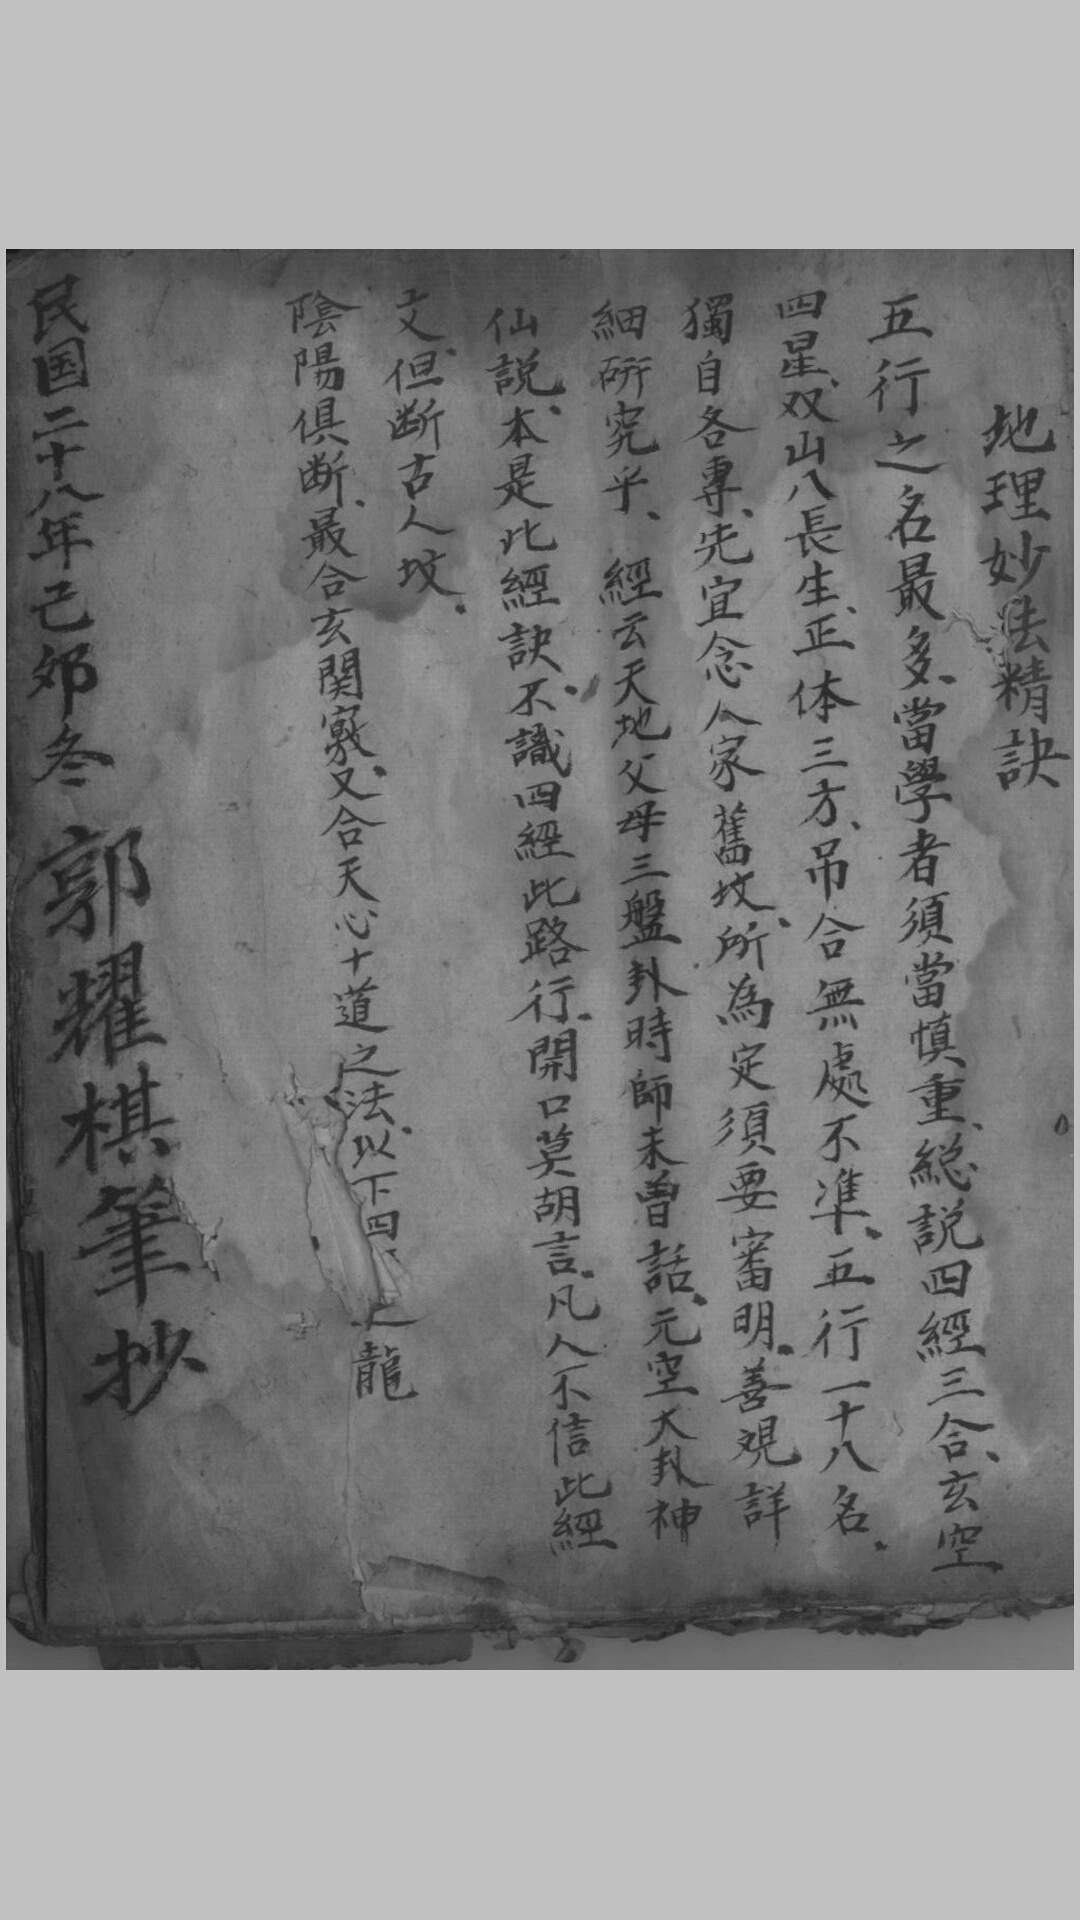 地理妙法精訣
五行之名最多、當學者須當慎重、総説四經三合、玄空
四星、双山八長生、正体三方、吊合無處不準、五行一十八名、
獨自各專、先宜念人家舊坟、所為定須要審明、善視詳
細研究乎、經云天地父母三盤卦時師未曾話、元空大卦神
仙説、本是此經訣、不識四經此路行、開口莫胡言、凡人不信此經
文、但断古人坟、
陰陽俱断、最合玄関竅、又合天心十道之法、以下四之龍
民国二十八年己卯冬 郭耀棋筆抄